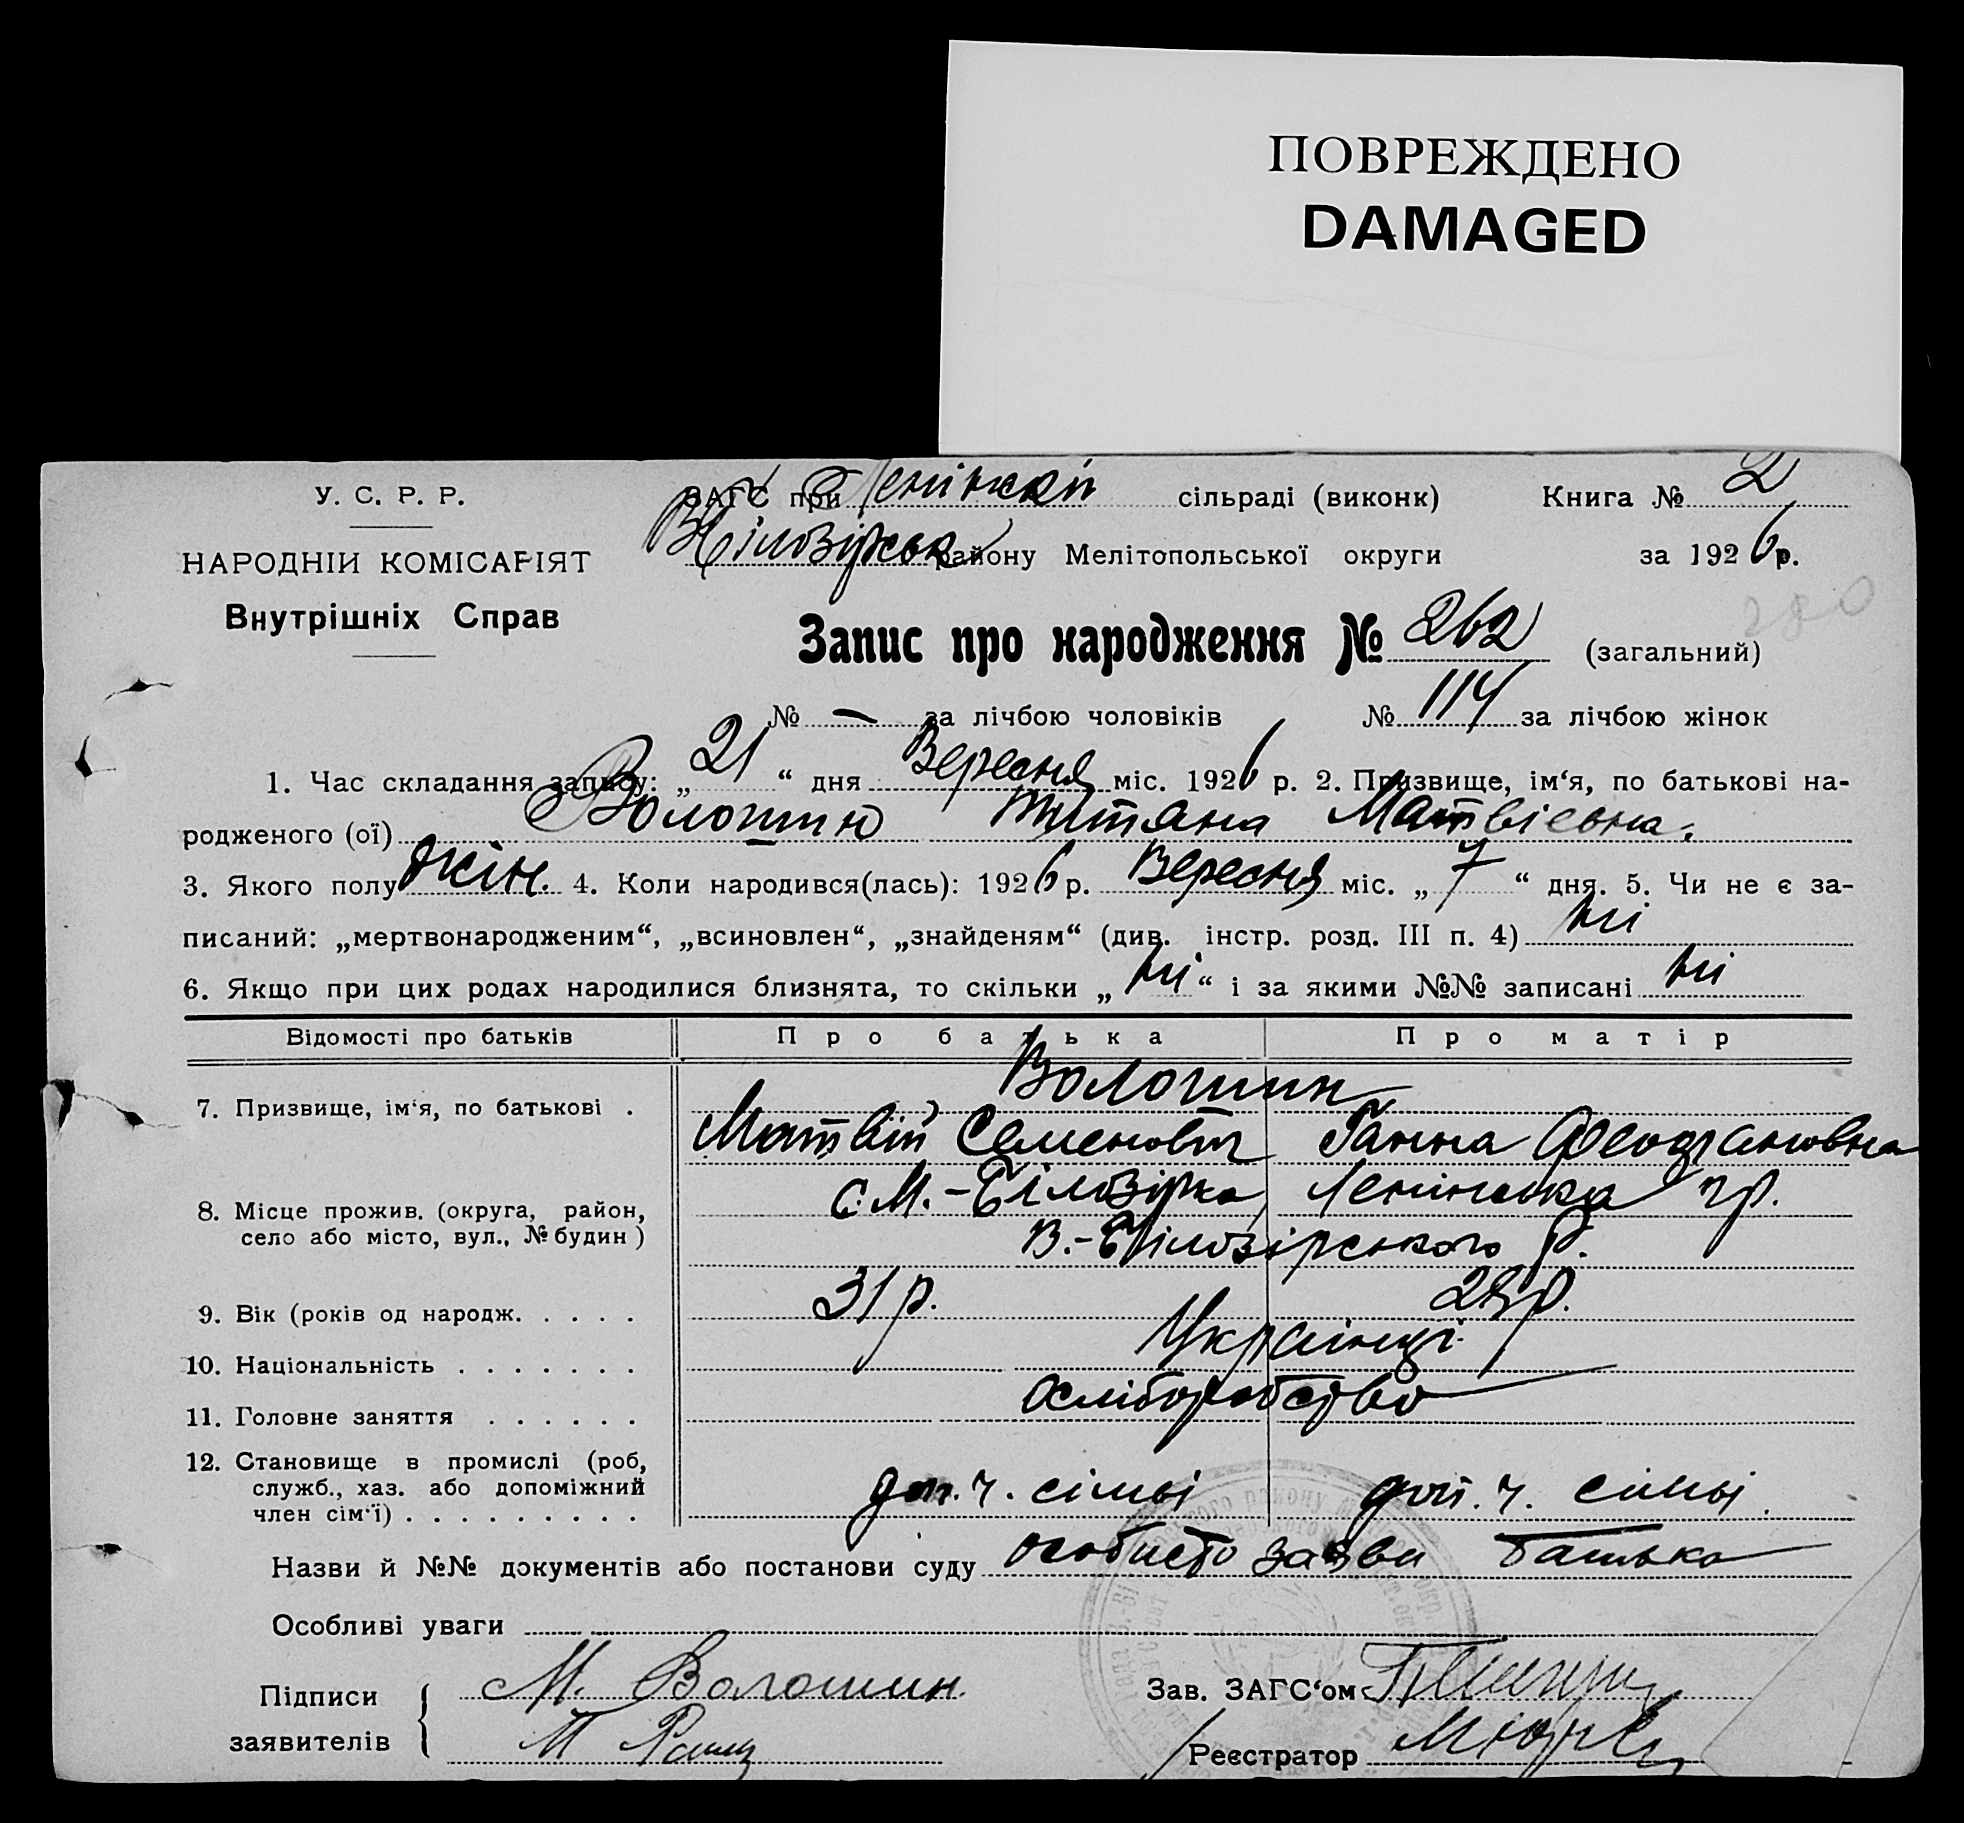 ПОВРЕЖДЕНО
DAMAGED
У. С. Р. Р.
НАРОДНІЙ КОМІСАРІЯТ
Внутрішніх Справ
ЗАГС при Ленінскій сільраді (виконк) Книга № 2
В Білозірськ району Мелітопольської округи за 1926 р.
280
Запис про народження № 262 (загальний)
№ — за лічбою чоловіків № 114 за лічбою жінок
1. Час складання запису: „21“ дня Вересня міс. 1926 р. 2. Призвище, ім‘я, по батькові на-
родженого (ої) Волошин Титяна Матвієвна.
3. Якого полу жін. 4. Коли народився(лась): 1926 р. Вересня міс. „7“ дня. 5. Чи не є за-
писаний: „мертвонародженим“, „всиновлен“, „знайденям“ (див. інстр. розд. III п. 4) ні
6. Якщо при цих родах народилися близнята, то скільки „ні“ і за якими №№ записані ні
Відомості про батьків Про батька Про матір
7. Призвище, ім‘я, по батькові . Волошин
Матвій Семенович Ганна Феофановна
8. Місце прожив. (округа, район, село або місто, вул., № будин) с. М.-Білозірка, Ленінська гр.
В.-Білозірського р.
9. Вік (років од народж. . . . . 31 р. 28 р.
10. Національність . . . . . . . Українці
11. Головне заняття . . . . . . хліборобство
12. Становище в промислі (роб, служб., хаз. або допоміжний член сім‘ї) . . . . . . . . . доп. ч. сімьі доп. ч. сімьі.
Назви й №№ документів або постанови суду особисто заяви батька
Особливі уваги
Підписи заявителів { М. Волошин.
Зав. ЗАГС‘ом
Реєстратор